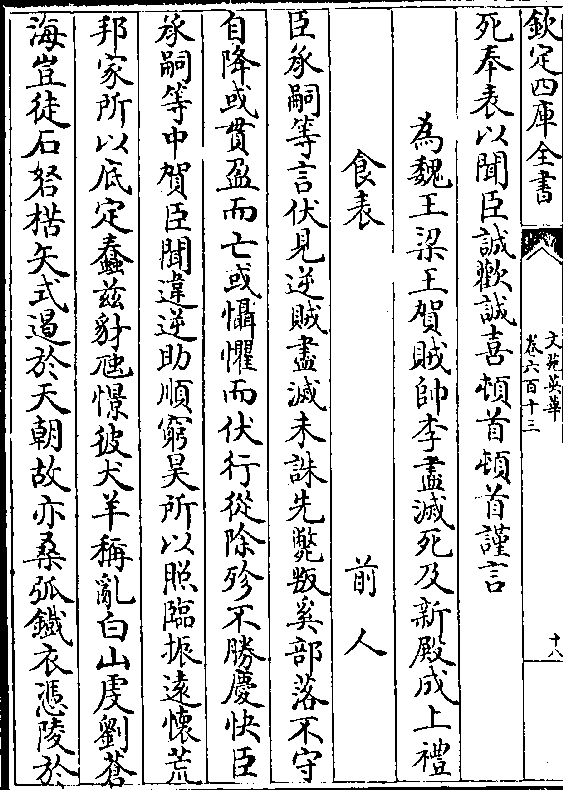 欽定四庫全書
文苑英華
卷六百十三
十八
死奉表以聞臣誠歡誠喜頓首頓首謹言
為魏王梁王賀賊帥李盡滅死及新殿成上禮
食表
前人
臣承嗣等言伏見逆賊盡滅未誅先斃叛奚部落不守
自降或貫盈而亡或懾懼而伏行從除殄不勝慶快臣
承嗣等中賀臣聞違逆助順窮昊所以照臨振遠懷荒
邦家所以底定蠢兹豺虺憬彼犬羊稱亂白山虔劉蒼
海豈徒石砮楛矢式遏於天朝故亦桑弧鐵衣憑陵於